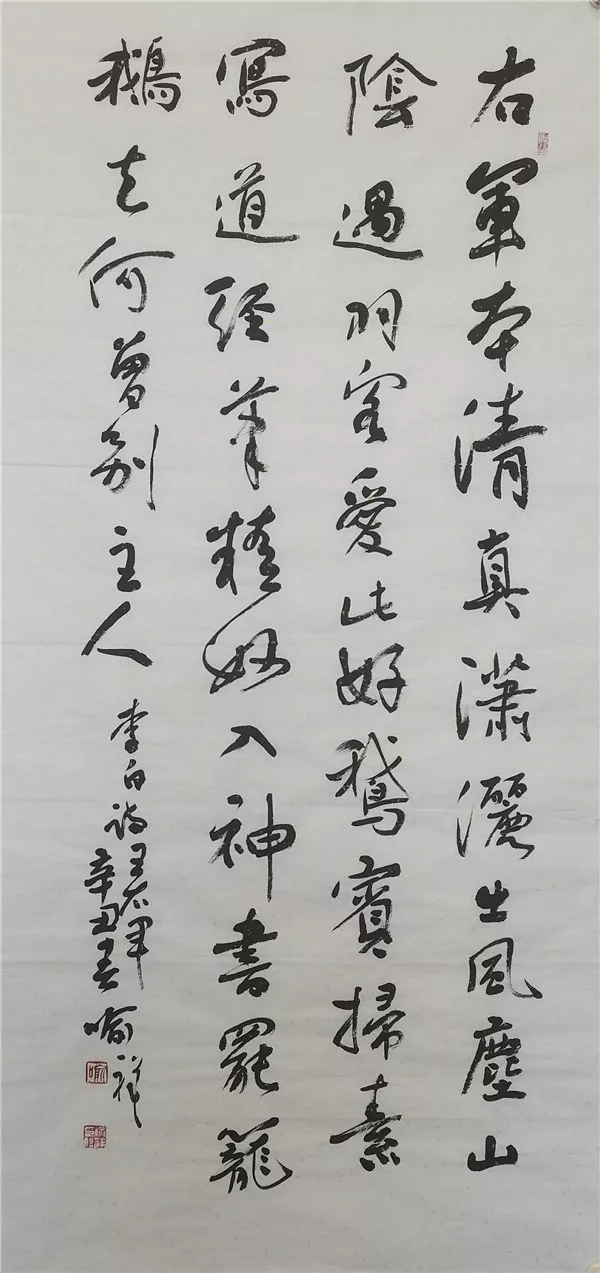 右軍本清真瀟灑出風塵山
陰遇羽客愛此好鵝賓掃素
寫道經筆精妙入神書罷籠
鵝去何曾別主人 李白詩王右軍
辛丑春喻祥